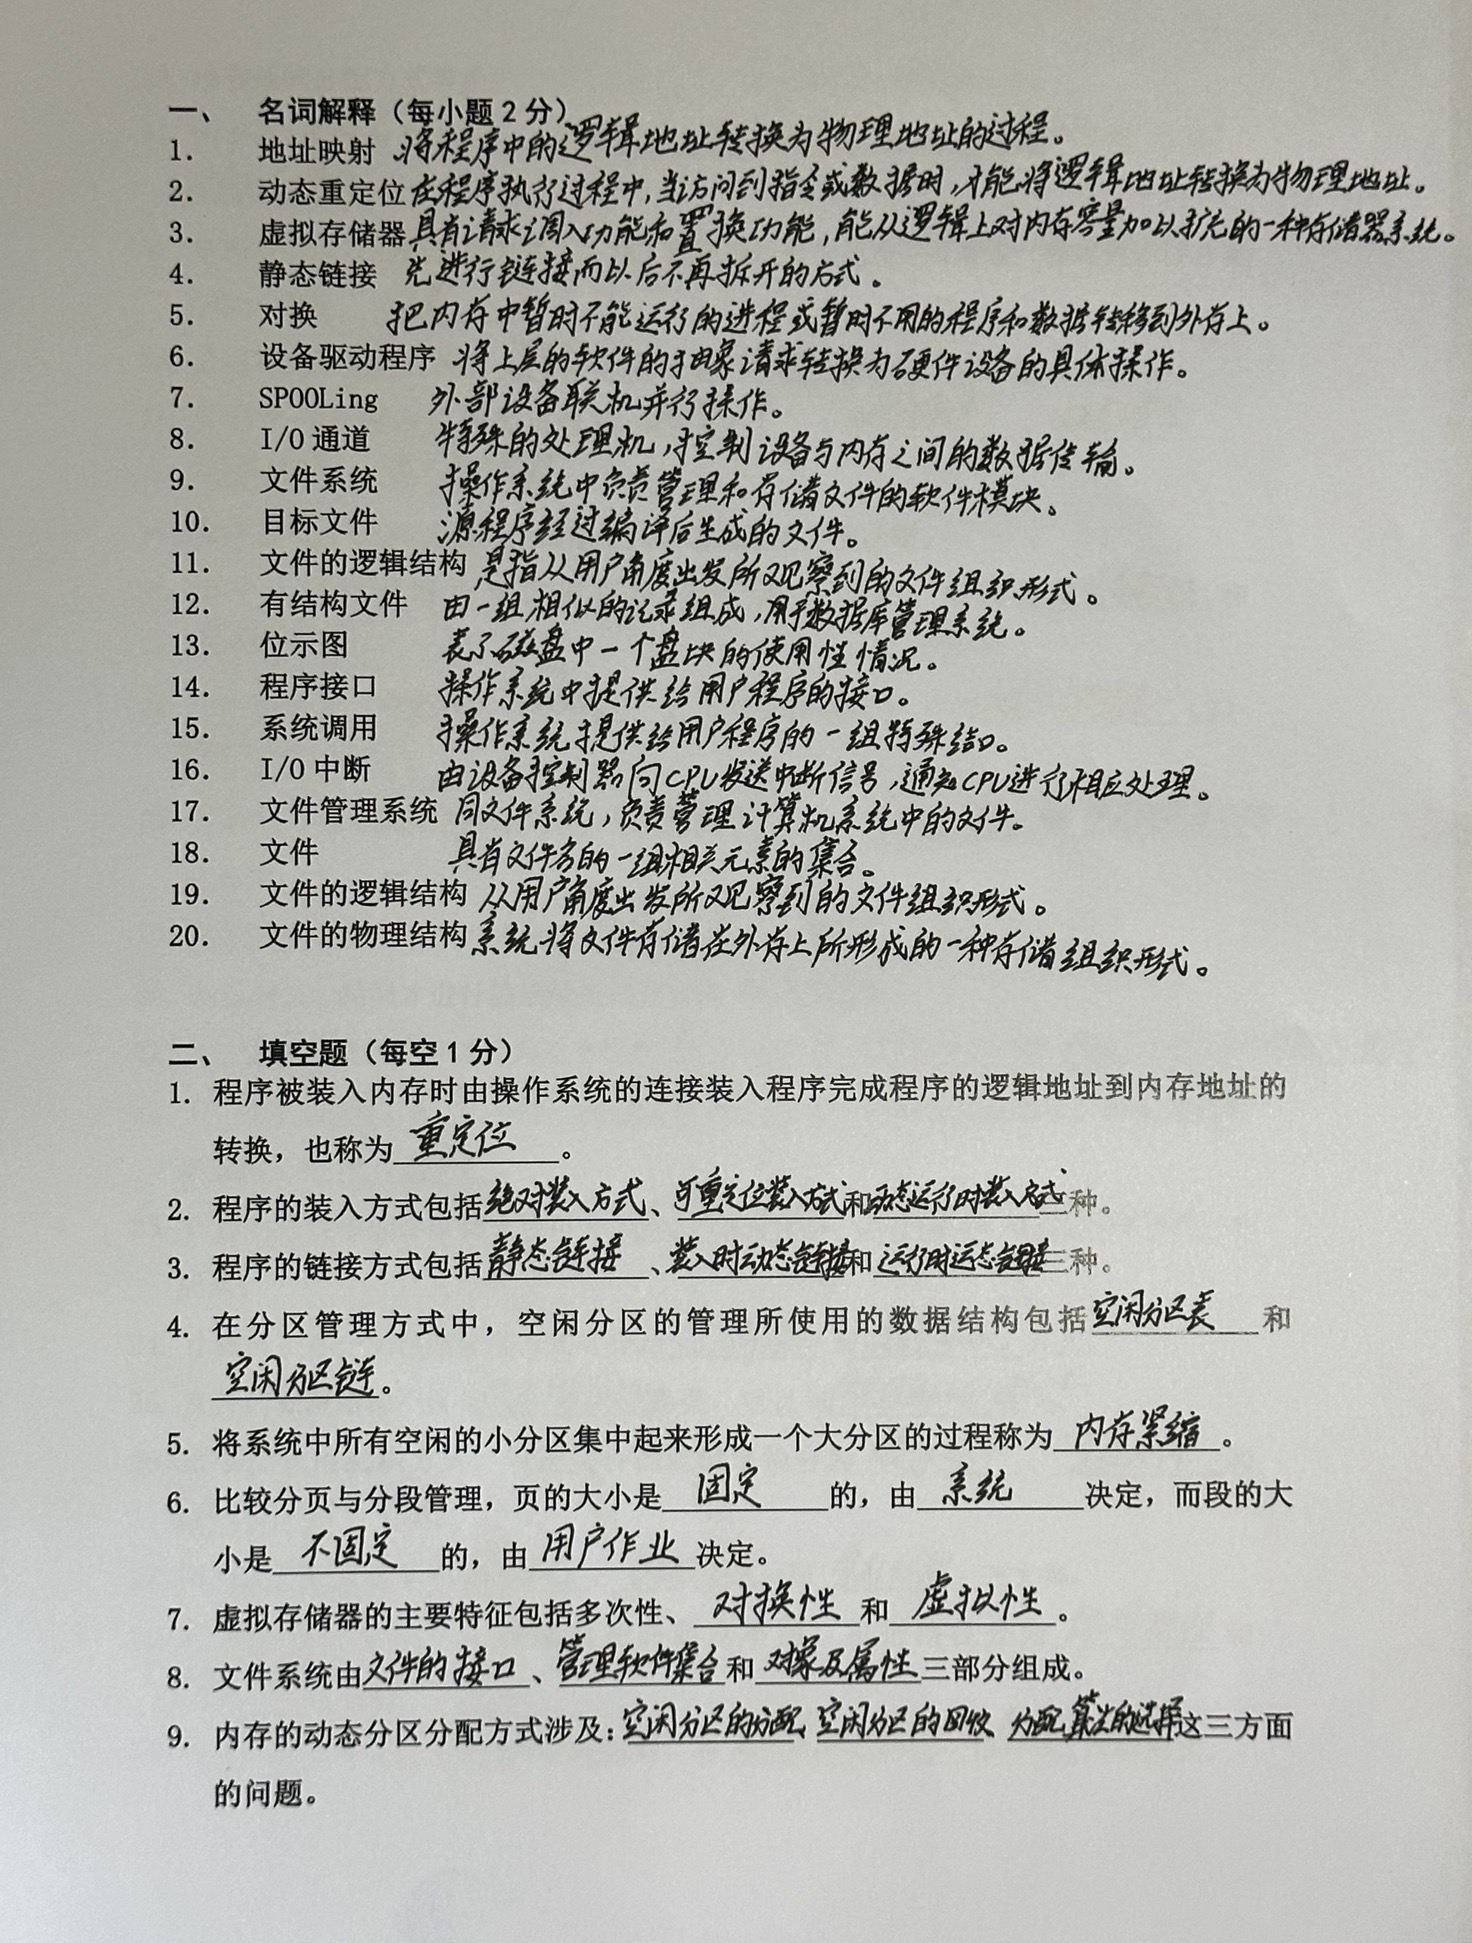 一、 名词解释（每小题2分）
1. 地址映射 将程序中的逻辑地址转换为物理地址的过程。
2. 动态重定位 在程序执行过程中,当访问到指令或数据时,才能将逻辑地址转换为物理地址。
3. 虚拟存储器 具有请求调入功能和置换功能,能从逻辑上对内存容量加以扩充的一种存储器系统。
4. 静态链接 先进行链接而以后不再拆开的方式。
5. 对换 把内存中暂时不能运行的进程或暂时不用的程序和数据转移到外存上。
6. 设备驱动程序 将上层的软件的抽象请求转换为硬件设备的具体操作。
7. SPOOLing 外部设备联机并行操作。
8. I/O通道 特殊的处理机,控制设备与内存之间的数据传输。
9. 文件系统 操作系统中负责管理和存储文件的软件模块。
10. 目标文件 源程序经过编译后生成的文件。
11. 文件的逻辑结构 是指从用户角度出发所观察到的文件组织形式。
12. 有结构文件 由一组相似的记录组成,用于数据库管理系统。
13. 位示图 表示磁盘中一个盘块的使用性情况。
14. 程序接口 操作系统中提供给用户程序的接口。
15. 系统调用 操作系统提供给用户程序的一组特殊结口。
16. I/O中断 由设备控制器向CPU发送中断信号,通知CPU进行相应处理。
17. 文件管理系统 同文件系统,负责管理计算机系统中的文件。
18. 文件 具有文件名的一组相关元素的集合。
19. 文件的逻辑结构 从用户角度出发所观察到的文件组织形式。
20. 文件的物理结构 系统将文件存储在外存上所形成的一种存储组织形式。
二、 填空题（每空1分）
1. 程序被装入内存时由操作系统的连接装入程序完成程序的逻辑地址到内存地址的
转换，也称为 重定位 。
2. 程序的装入方式包括绝对装入方式、可重定位装入方式和动态运行时装入方式三种。
3. 程序的链接方式包括静态链接、装入时动态链接和运行时运态链接三种。
4. 在分区管理方式中，空闲分区的管理所使用的数据结构包括空闲分区表 和
空闲分区链。
5. 将系统中所有空闲的小分区集中起来形成一个大分区的过程称为 内存紧缩 。
6. 比较分页与分段管理，页的大小是 固定 的，由 系统 决定，而段的大
小是 不固定 的，由 用户作业 决定。
7. 虚拟存储器的主要特征包括多次性、 对换性 和 虚拟性 。
8. 文件系统由文件的接口、管理软件集合和 对象及属性 三部分组成。
9. 内存的动态分区分配方式涉及：空闲分区的分配、空闲分区的回收、分配算法的选择这三方面
的问题。